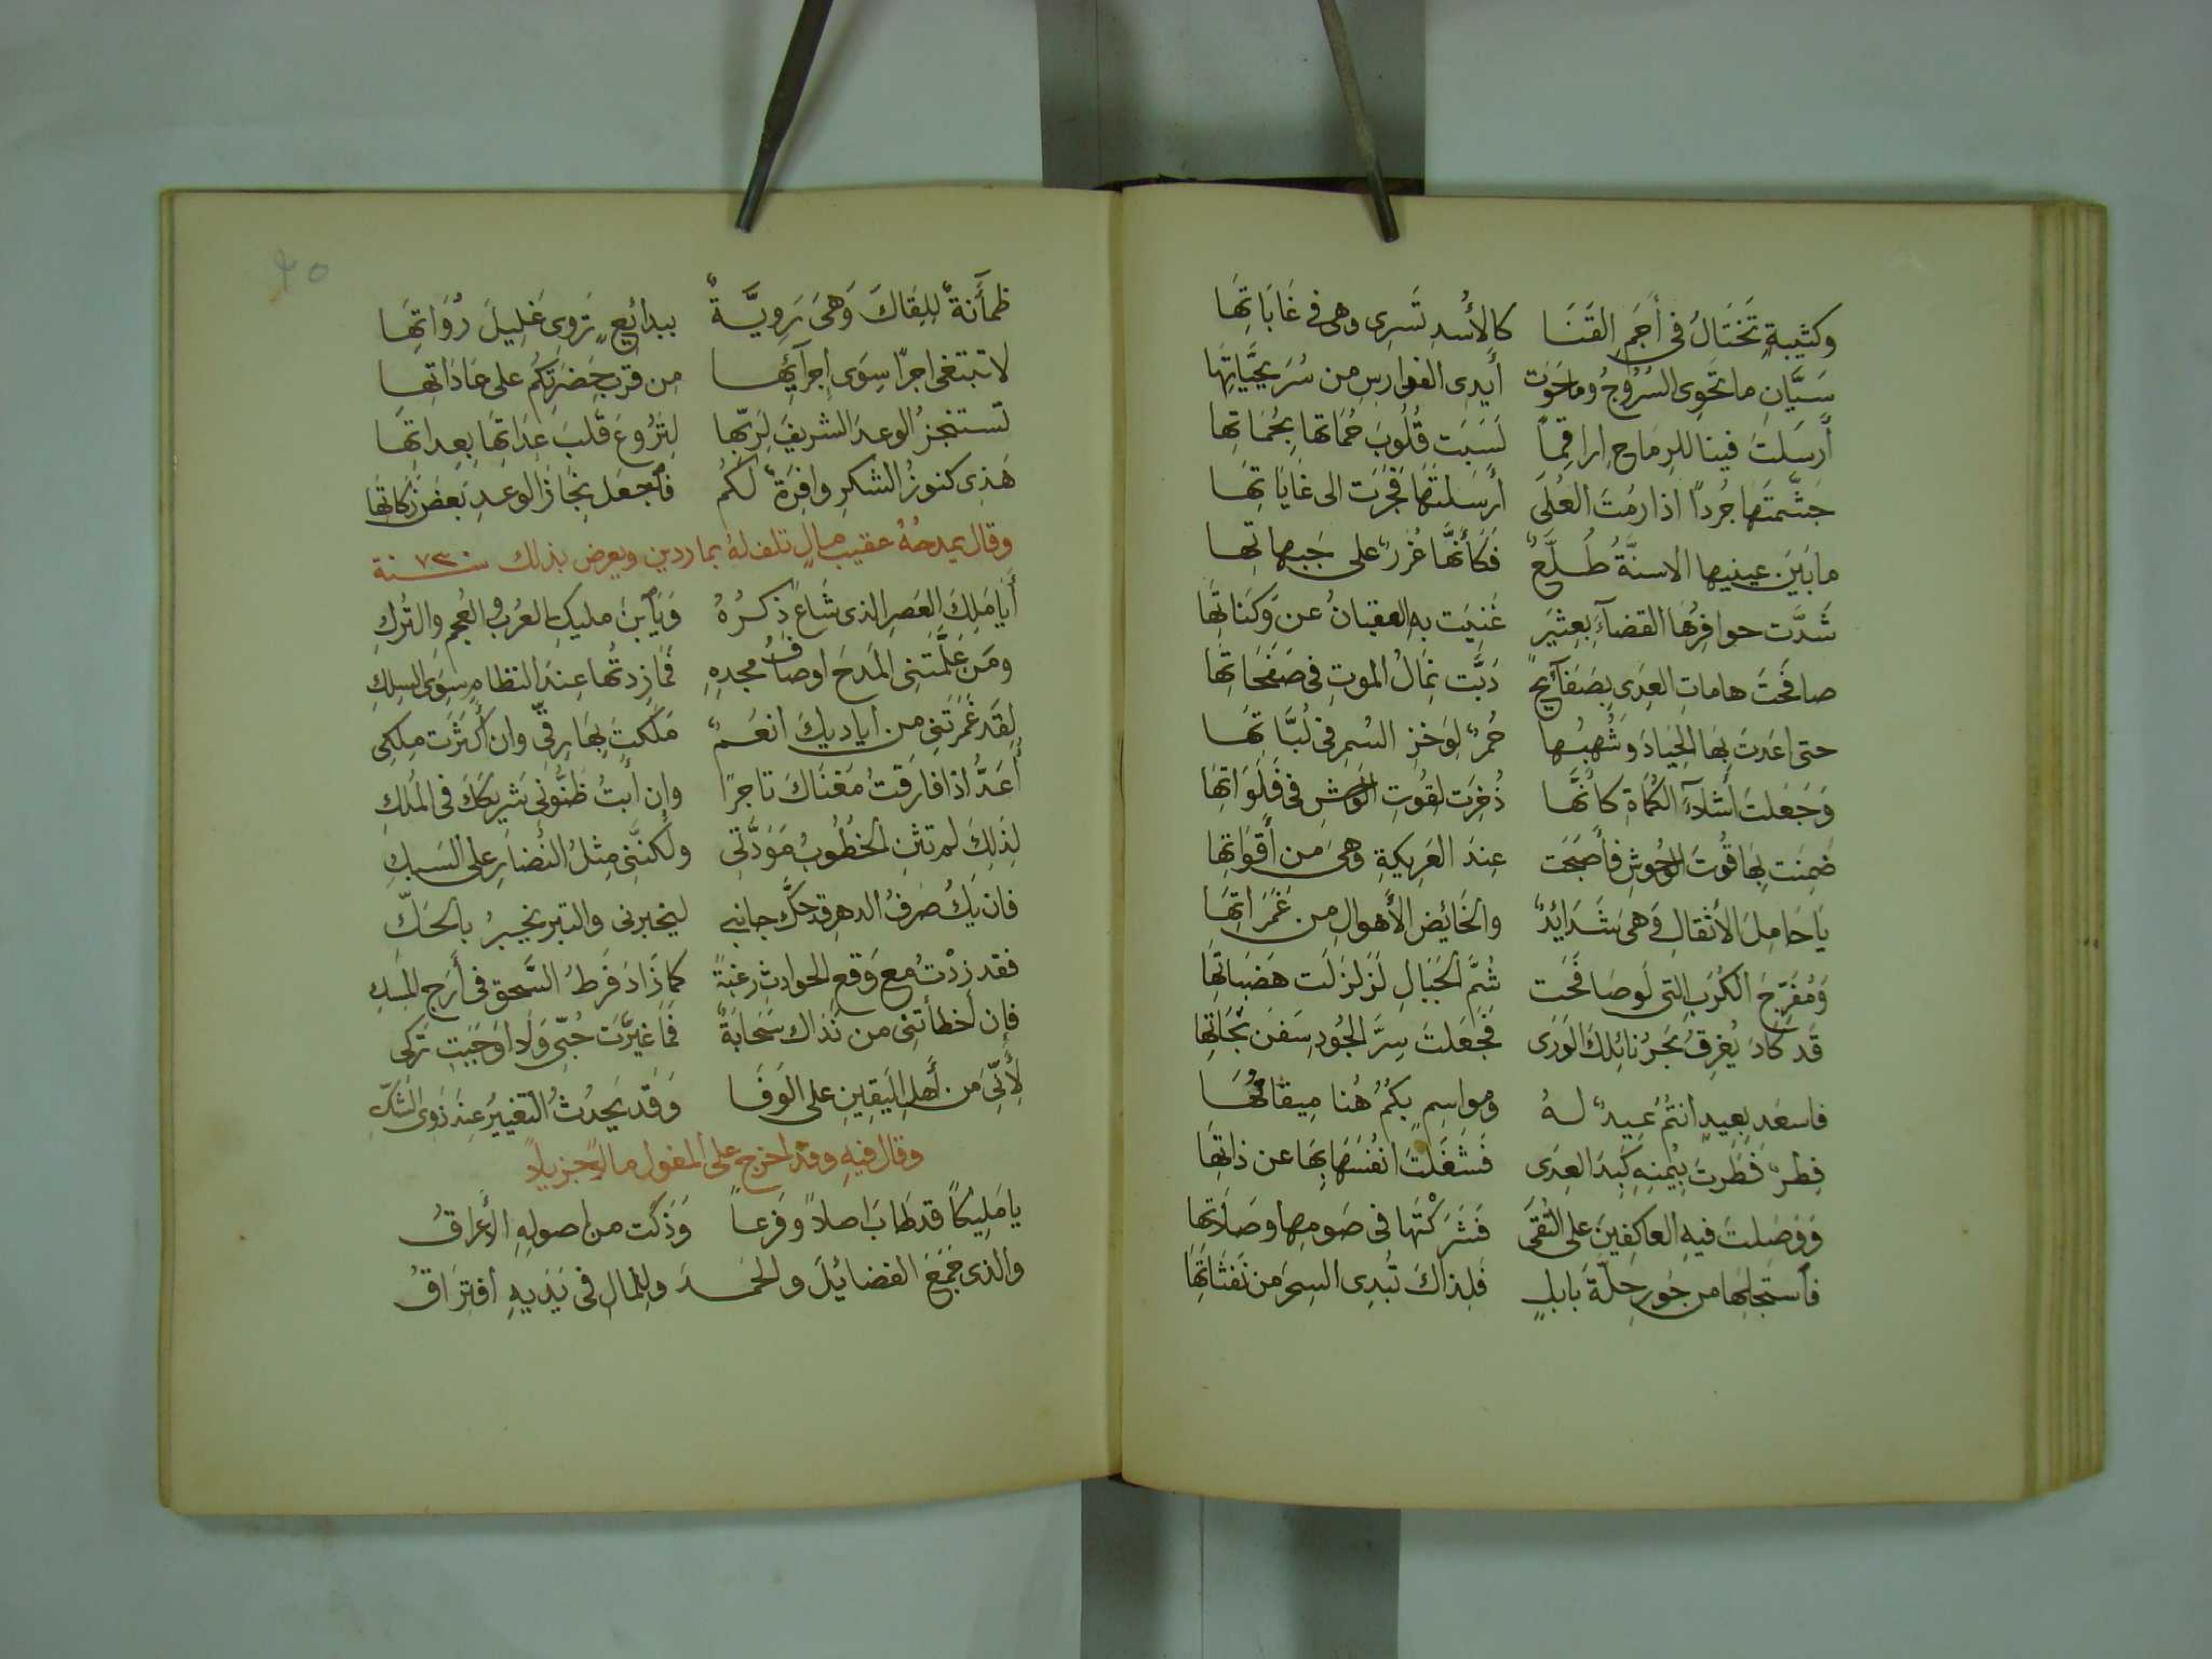 وكتيبةٍ تَختَالُ في أَجَمِ القَنَا كالأُسدِ تَسرِى وهى في غَابَاتِهَا
سَيَّانِ ما تَحوِى السُرُوجُ وما حَوَت أَيدِى الفوارسِ من سُرَيحَيَّاتِهَا
أَرسَلتَ فينا للرِمَاحِ اراقِماً لَسَبَت قُلُوبَ حُمَاتها بحُمَاتِها
جَشَّمتَها جُردًا اذا رُمتَ العُلَى أَرسَلتَهَا فَجَرَت الى غَايَاتِهَا
ما بَينَ عينيها الاسنَّةُ طُلَّعٌ فَكَأنَّهَا غُرَرٌ على جَبهاتها
شَدَّت حوافِرُهَا القضآءَ بِعِثيَرٍ غَنِيَت به العقبانُ عن وَكَنَاتِهَا
صافَحتَ هاماتِ العِدَى بِصَفَآئِحٍ دَبَّت نِمَالُ الموتِ في صَفَحَاتِهَا
حتى اعَدتَ بِهَا الجِيَادَ وَشُهبُها حُمرٌ لِوَخزِ السُمرِ في لُبَّاتِهَا
وَجَعَلتَ أَشلَآءَ الكُمَاةِ كانَّها ذُخِرَت لِقُوتِ الوَحشِ في فَلَوَاتِهَا
ضَمِنَت بِهَا قُوتَ الوُحُوشِ فأَصبَحَت عِندَ العَرِيكةِ وَهىَ من أَقوَاتِهَا
يَا حَامِلَ الأَثقَالِ وَهىَ شَدَائِدٌ والخَائِضَ الأَهوالِ من غَمَرَاتِهَا
وَمُفَرِّجَ الكُرَبِ التي لَو صَافَحَت شُمَّ الجَبَالِ لَزَلزَلَت هَضَبَاتِهَا
قَد كَادَ يُغرِقُ بَحرُ نائِلِكَ الوَرَى فَجَعَلتَ سِرَّ الجُودِ سَفنَ نَجَاتِهَا
فاسعَد بِعِيدٍ أنتُم عيدٌ لهُ ومواسِمٍ بِكُمُ هُنا مِيقَاتُهَا
فِطرٌ فَطَرتَ بِيُمنِهِ كَبِدَ العِدَى فَشَغَلتَ انفُسَهَا بِهَا عن ذاتِهَا
وَوَصَلتَ فيهِ العاكِفِينَ على التُقَى فَشَرَكْتَها في صَومِها وصَلَاتِها
فأستَجلِهَا من حُورِ حِلّةَ بَابلٍ فَلِذاكَ تُبدِى السِحرَ من نَفَثَاتِهَا
ظمأَنَةٌ لِلِقَاكَ وَهىَ رَوِيَّةٌ ببدائِعٍ تَروِى غَلِيلَ رُوَاتِهَا
لا تبتغى اجرًا سِوَى إجرآئِها من قُربِ حَضرَتِكُم على عَادَاتِها
تستنجزُ الوعدَ الشريفَ لِرَبِّها لِتَرُوعَ قَلبَ عِدَاتِهَا بِعِداتِهَا
هَذِى كنوزُ الشكرِ وافِرَةٌ لَكُم فأجعَل نِجَازَ الوعدِ بَعضَ زَكَاتِهَا
وقال يمدحُهُ عقيب مالٍ تلف لهُ بماردين ويعرض بذلك سنة ٧٣٠
أَيَا مَلِكَ العَصرِ الذى شَاعَ ذكرُهُ وَيَأبنَ مليكِ العُربِ والعُجمِ والتُركِ
ومَن عَلَّمَتنِى المَدحَ اوصَافُ مجدِهِ فَمَا زِدتُها عِندَ النظامِ سِوَى السِلكِ
لقَد غَمَرَتنى من أياديكَ انعُمٌ مَلَكتَ بِهَا رِقّى وان أَكثَرَت مِلكِى
أَعَدُّ اذا فارَقتُ مَغنَاكَ تاجرًا وإن أُبتُ ظَنُّونِى شَرِيكَكَ في المُلكِ
لِذلِكَ لم تثنِ الخُطُوبُ مَوَدَّتِى ولكنَّنى مِثلُ النُضَارِ على السَبكِ
فان يَكُ صَرفُ الدهرِ قد حَكَّ جانبي ليخبرنى والتبر يخبرُ بالحَكِّ
فقد زِدْتُ مع وَقعِ الحوادثِ رغبَةً كما زَادَ فَرطُ السَّحقِ في أَرَجِ المِسكِ
فإن أخطأَتنى من نَدَاك سَحَابَةٌ فَمَا غَيَّرَت حُبّى وَلَا اوجَبَت تَركى
لِأَنِّى مَن أَهلِ اليَقِينِ على الوَفَا وَقَد يَحدُثُ التغييرُ عِندَ ذَوِى الشَكِّ
وقال فيهِ وقد اخرج على المغول مالاً جزيلاً
يا مَلِيكًا قد طَابَ اصلاً وفَرعاً وَزَكَت من اصولِهِ الأَعرَاقُ
والذى جَمَعَ الفضائِلَ والحَمدَ وللمالِ في يَدَيهِ أفتِرَاقُ